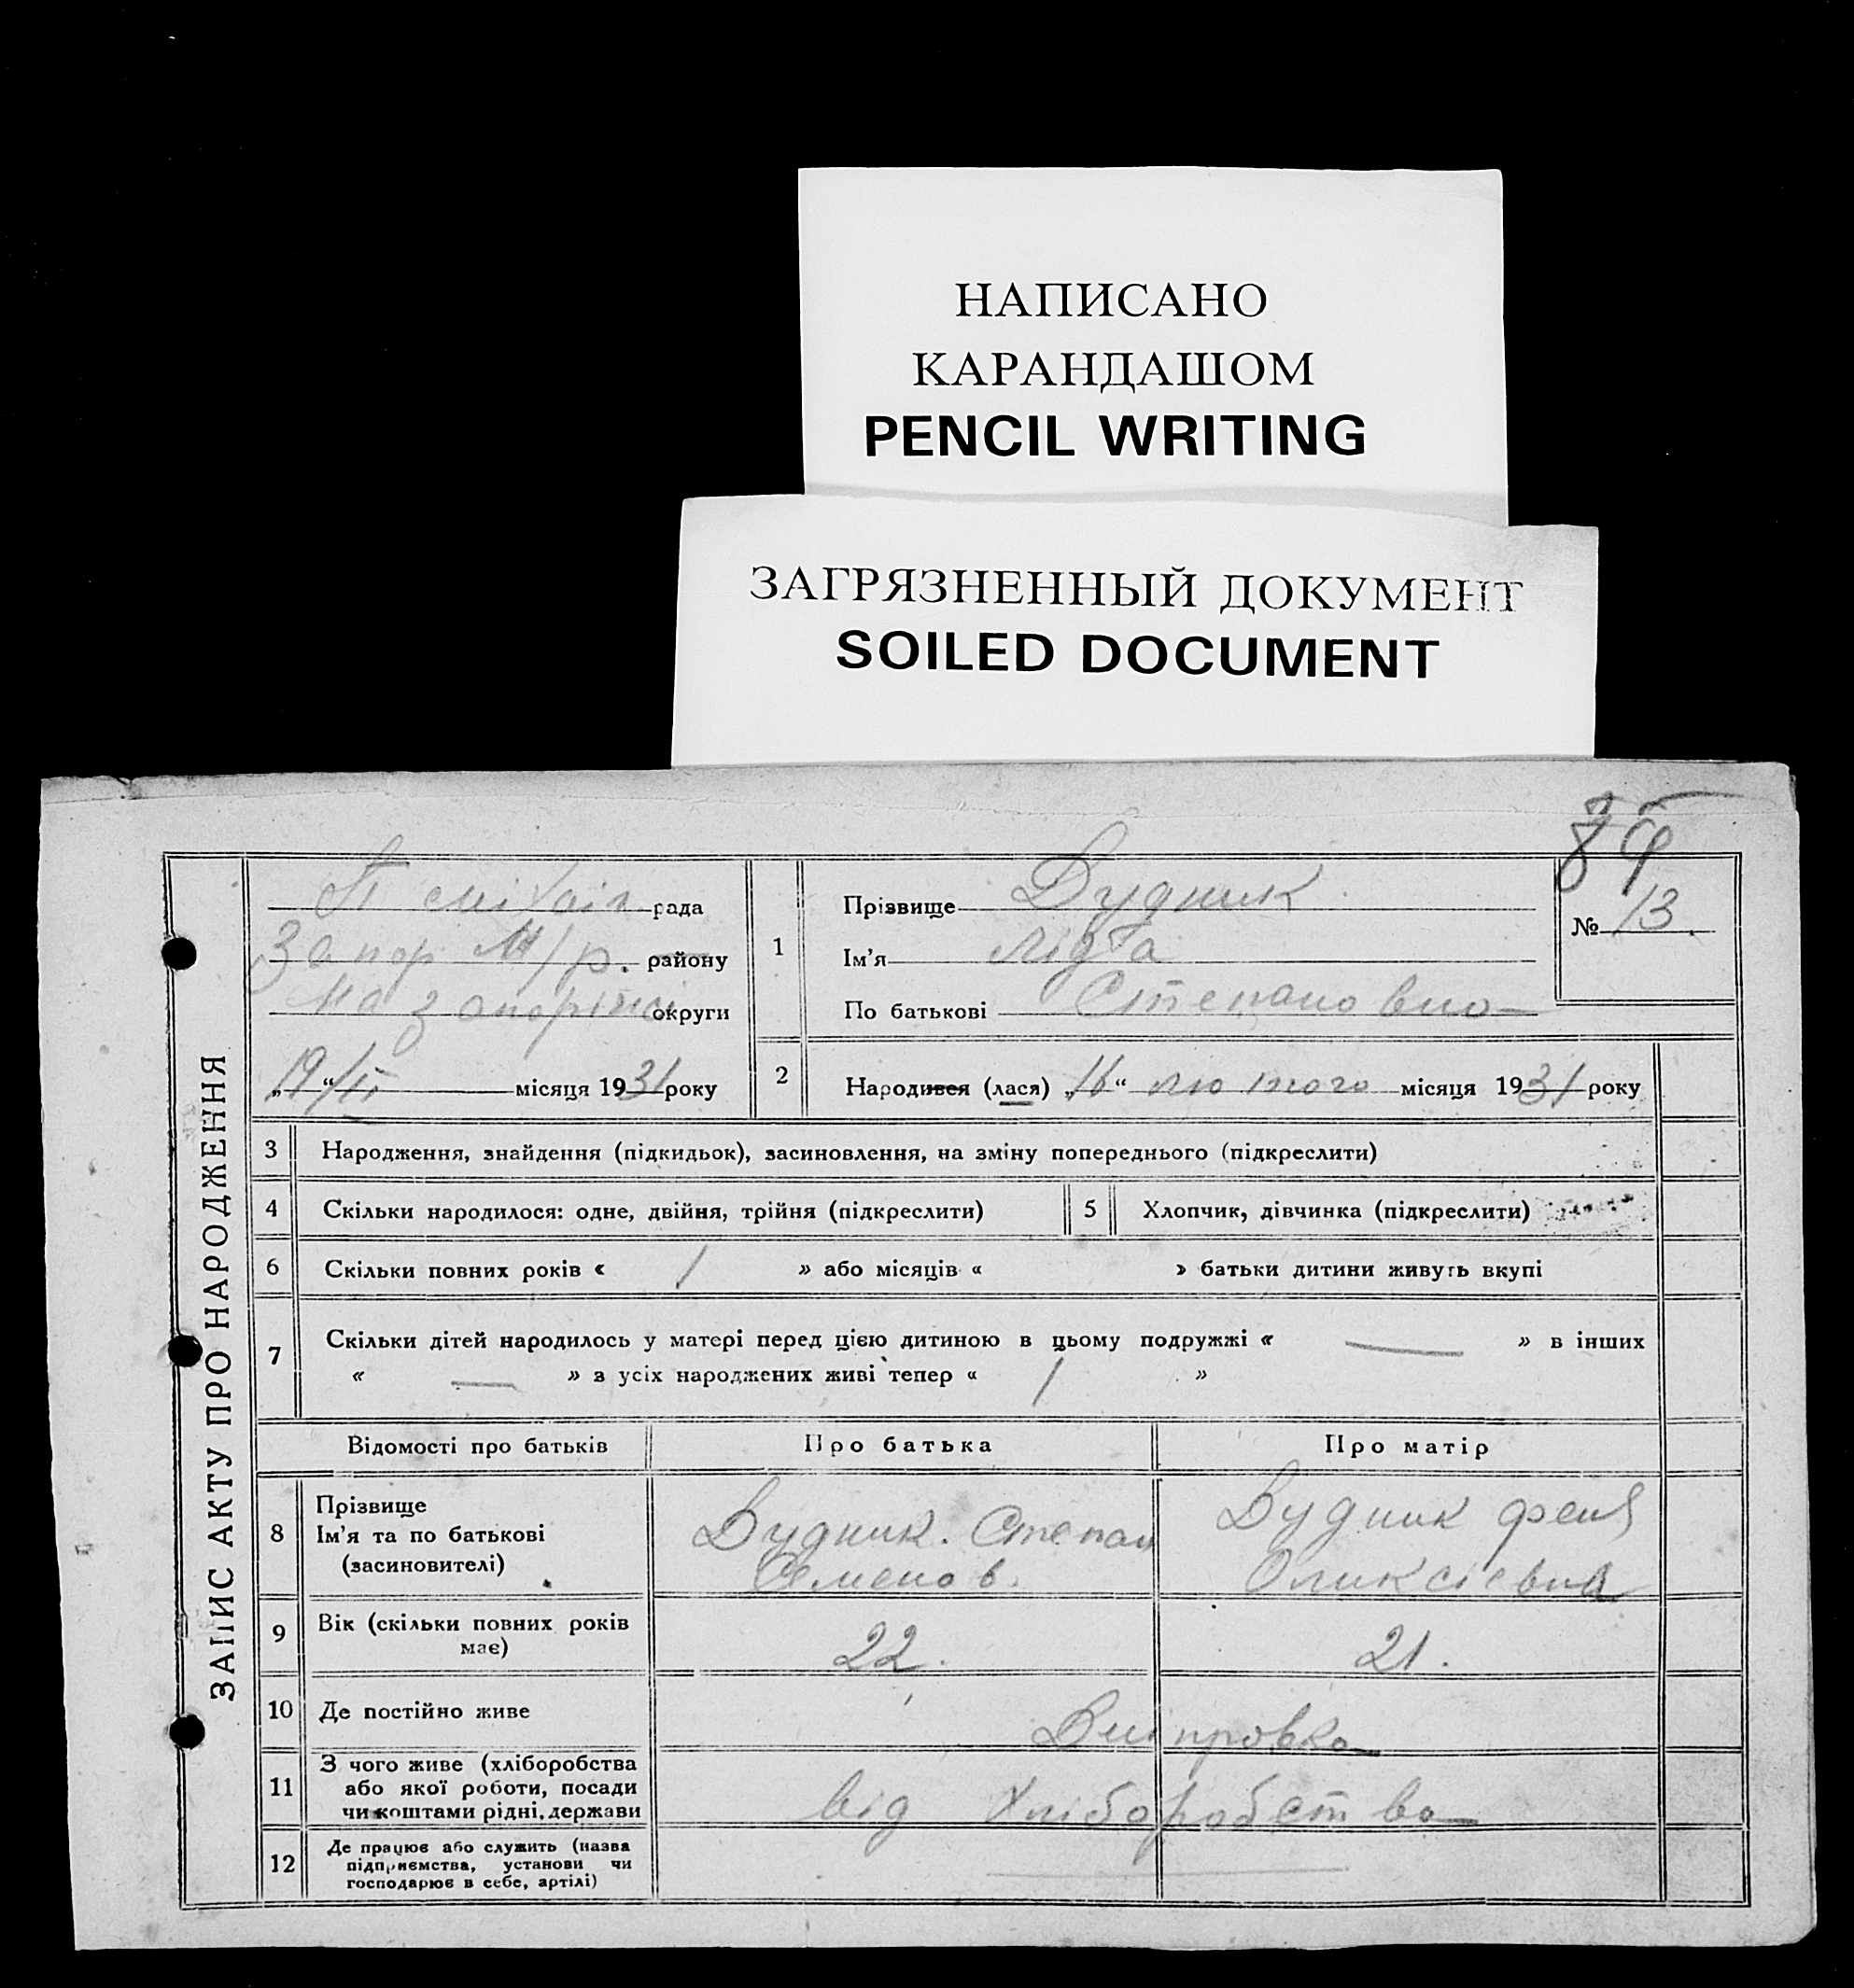 НАПИСАНО
КАРАНДАШОМ
PENCIL WRITING
ЗАГРЯЗНЕННЫЙ ДОКУМЕНТ
SOILED DOCUMENT
ЗАПИС АКТУ ПРО НАРОДЖЕННЯ
рада
Запор М/р. району
округи
„19“/II місяця 1931 року
1
Прізвище Дудник
Ім’я Лідia
По батькові Степановна
№ 13.
2
Народився (лася) „16“ лютого місяця 1931 року
3 Народження, знайдення (підкидьок), засиновлення, на зміну попереднього (підкреслити)
4 Скільки народилося: одне, двійня, трійня (підкреслити)
5 Хлопчик, дівчинка (підкреслити)
6 Скільки повних років « 1 » або місяців « » батьки дитини живуть вкупі
7 Скільки дітей народилось у матері перед цією дитиною в цьому подружжі « — » в інших
« — » з усіх народжених живі тепер « 1 »
Відомості про батьків
Про батька
Про матір
8 Прізвище
Ім’я та по батькові
(засиновителі)
Дудник. Степан
Семенов.
Дудник Феня
Оликсієвна
9 Вік (скільки повних років
має)
22.
21.
10 Де постійно живе
Дніпровка
11 З чого живе (хліборобства
або якої роботи, посади
чи коштами рідні, держави
від Хліборобства
12 Де працює або служить (назва
підприємства, установи чи
господарює в себе, артілі)